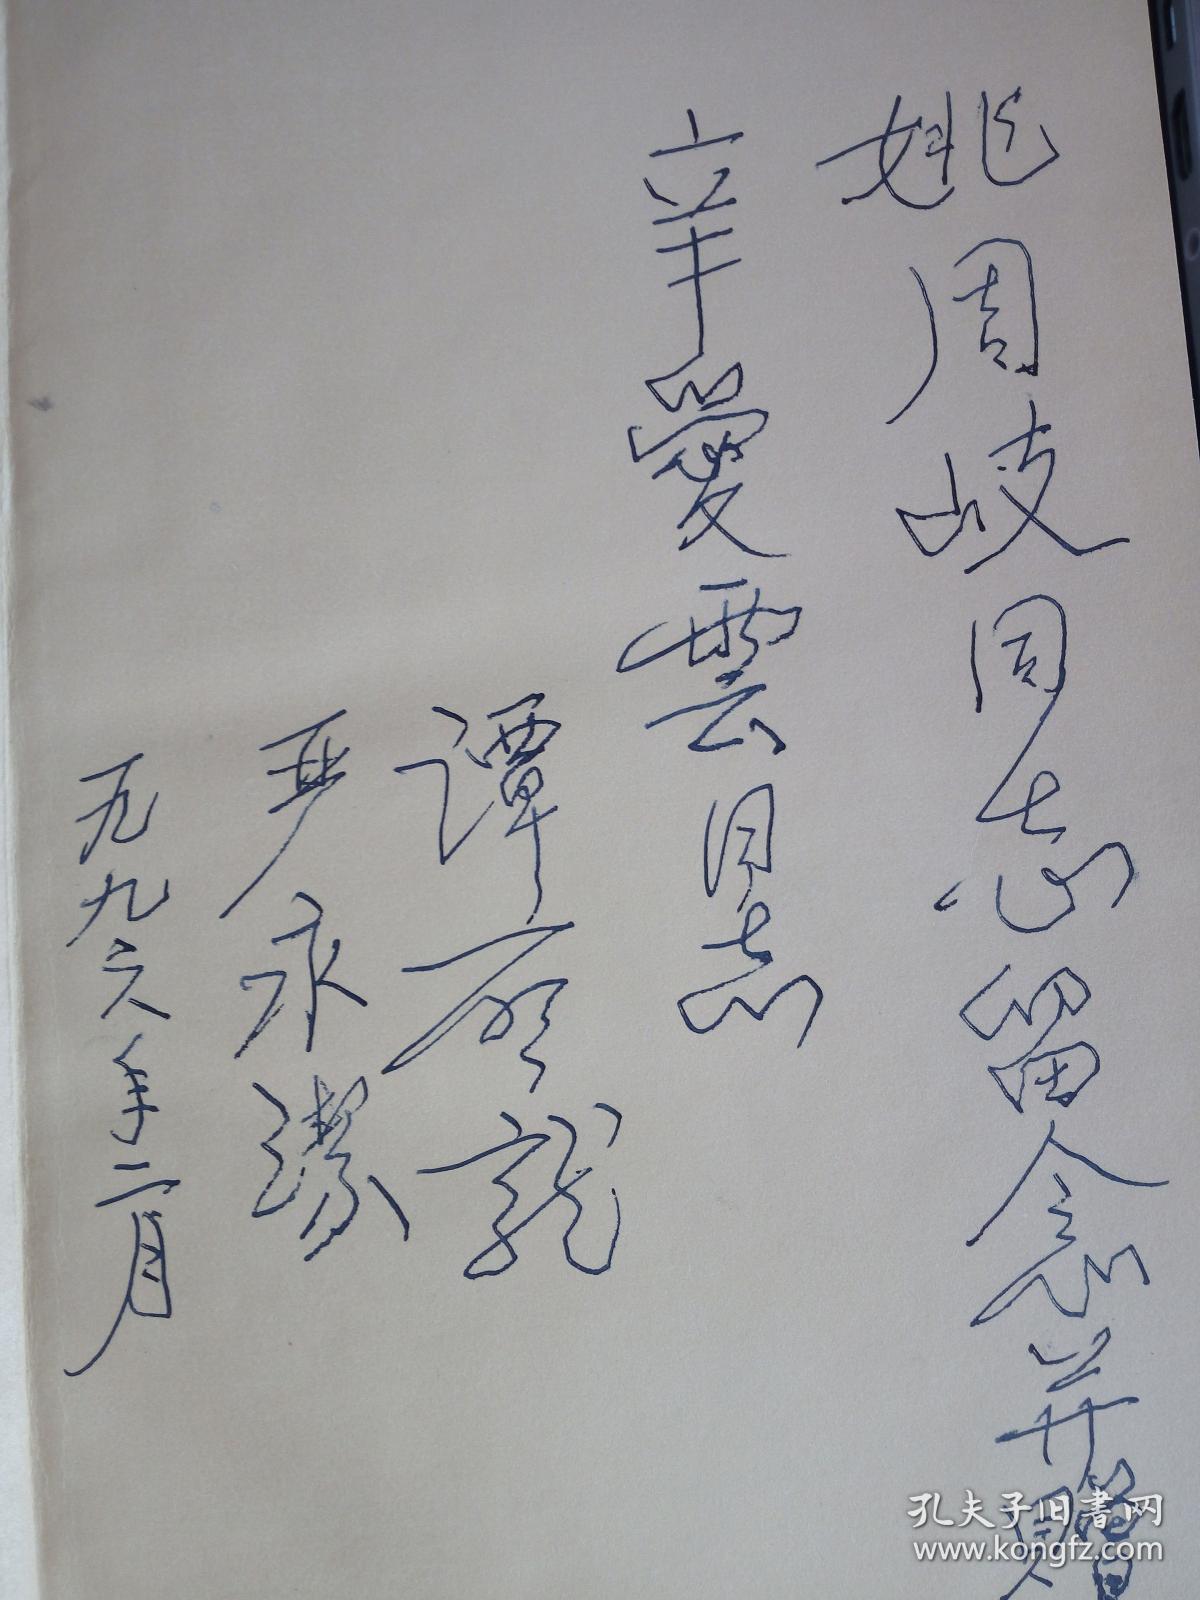 姚周岐同志留念并赠
辛愛雲同志
谭启龍
严永潔
九九六年二月
孔夫子旧書网
www.kongfz.com